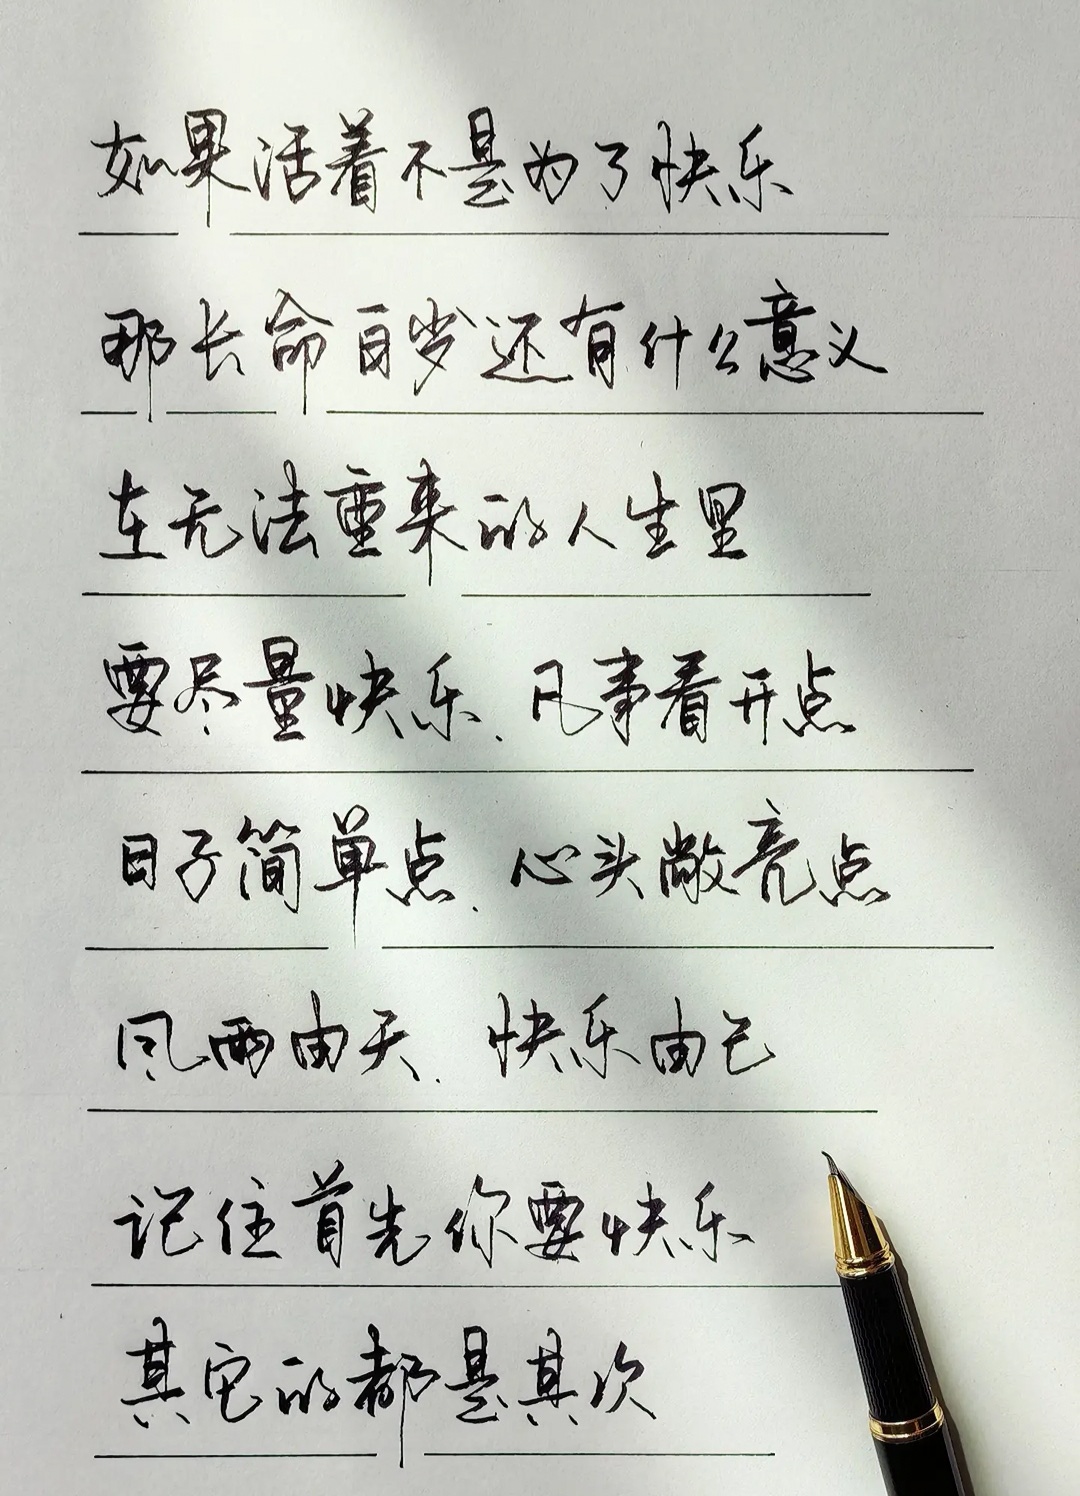 如果活着不是为了快乐
那长命百岁还有什么意义
在无法重来的人生里
要尽量快乐、凡事看开点
日子简单点、心头敞亮点
风雨由天、快乐由己
记住首先你要快乐
其它的都是其次